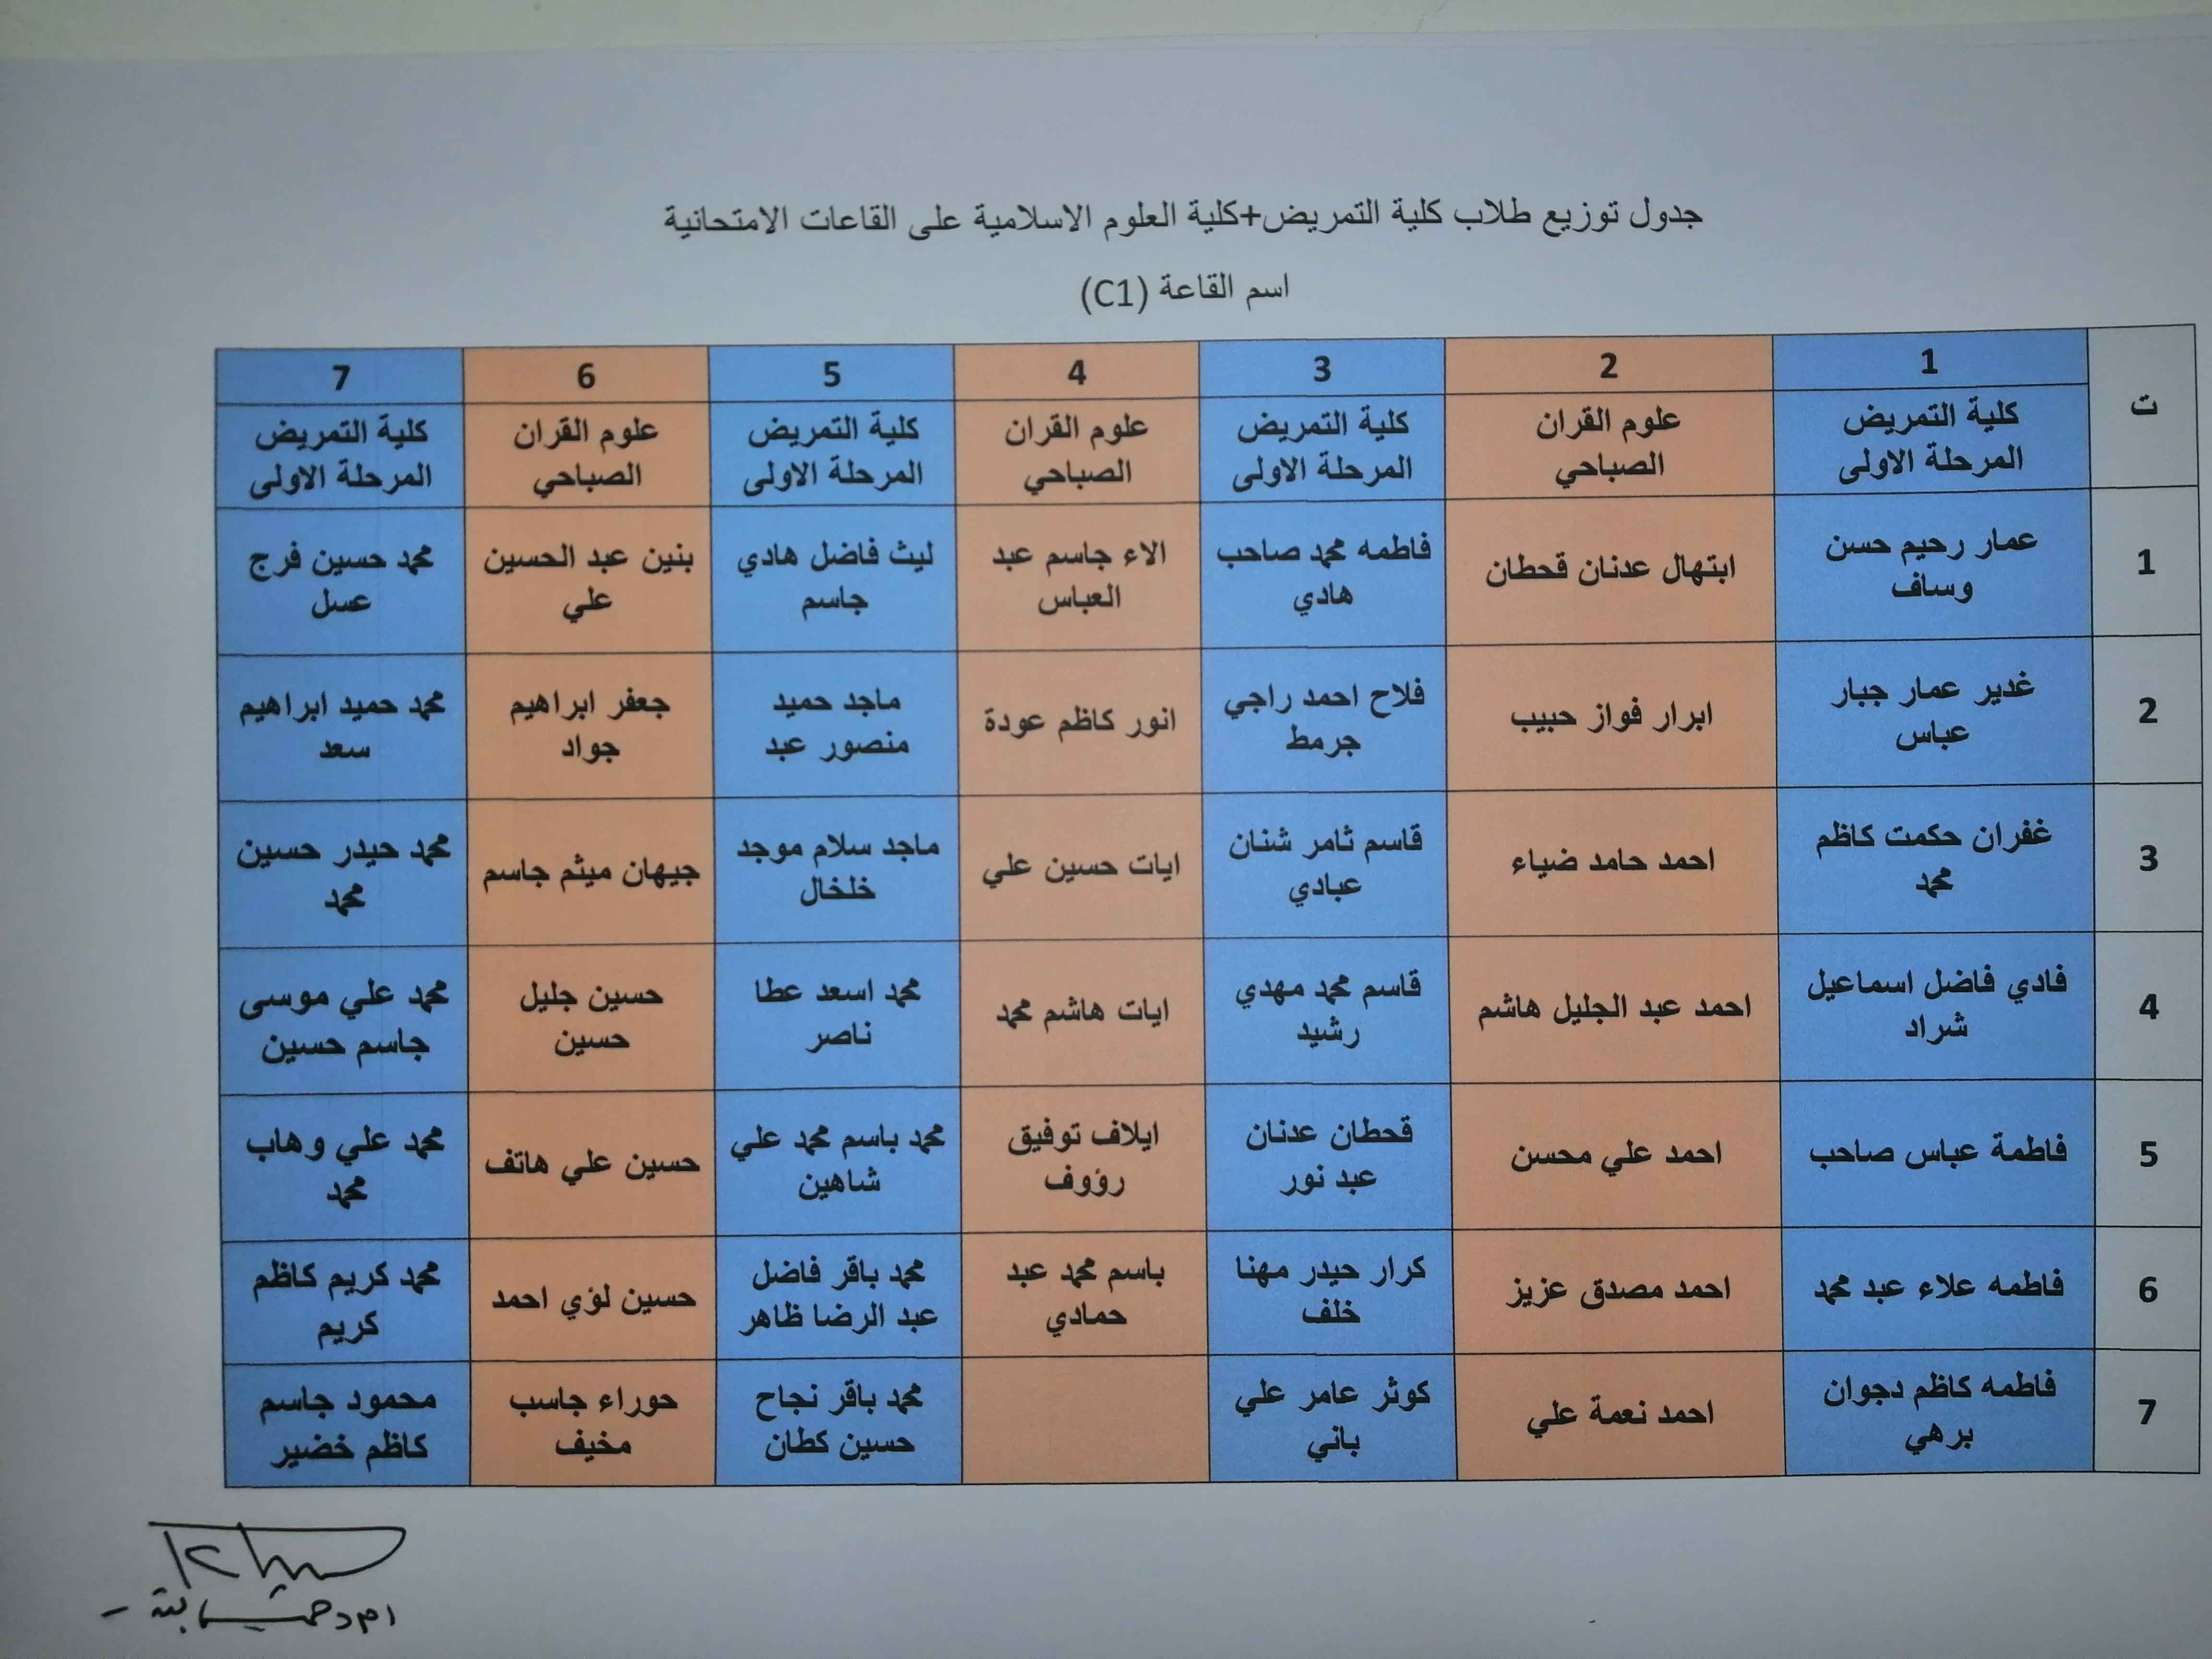 جدول توزيع طلاب كلية التمريض+كلية العلوم الاسلامية على القاعات الامتحانية
اسم القاعة (C1)
ت 1 2 3 4 5 6 7
كلية التمريض علوم القران كلية التمريض علوم القران كلية التمريض علوم القران كلية التمريض
المرحلة الاولى الصباحي المرحلة الاولى الصباحي المرحلة الاولى الصباحي المرحلة الاولى
1
عمار رحيم حسن
وساف
ابتهال عدنان قحطان
فاطمه محمد صاحب
هادي
الاء جاسم عبد
العباس
ليث فاضل هادي
جاسم
بنين عبد الحسين
علي
محمد حسين فرج
عسل
2
غدير عمار جبار
عباس
ابرار فواز حبيب
فلاح احمد راجي
جرمط
انور كاظم عودة
ماجد حميد
منصور عبد
جعفر ابراهيم
جواد
محمد حميد ابراهيم
سعد
3
غفران حكمت كاظم
محمد
احمد حامد ضياء
قاسم ثامر شنان
عبادي
ايات حسين علي
ماجد سلام موجد
خلخال
جيهان ميثم جاسم
محمد حيدر حسين
محمد
4
فادي فاضل اسماعيل
شراد
احمد عبد الجليل هاشم
قاسم محمد مهدي
رشيد
ايات هاشم محمد
محمد اسعد عطا
ناصر
حسين جليل
حسين
محمد علي موسى
جاسم حسين
5
فاطمة عباس صاحب
احمد علي محسن
قحطان عدنان
عبد نور
ايلاف توفيق
رؤوف
محمد باسم محمد علي
شاهين
حسين علي هاتف
محمد علي وهاب
محمد
6
فاطمه علاء عبد محمد
احمد مصدق عزيز
كرار حيدر مهنا
خلف
باسم محمد عبد
حمادي
محمد باقر فاضل
عبد الرضا ظاهر
حسين لؤي احمد
محمد كريم كاظم
كريم
7
فاطمه كاظم دجوان
برهي
احمد نعمة علي
كوثر عامر علي
باني
محمد باقر نجاح
حسين كطان
حوراء جاسب
مخيف
محمود جاسم
كاظم خضير